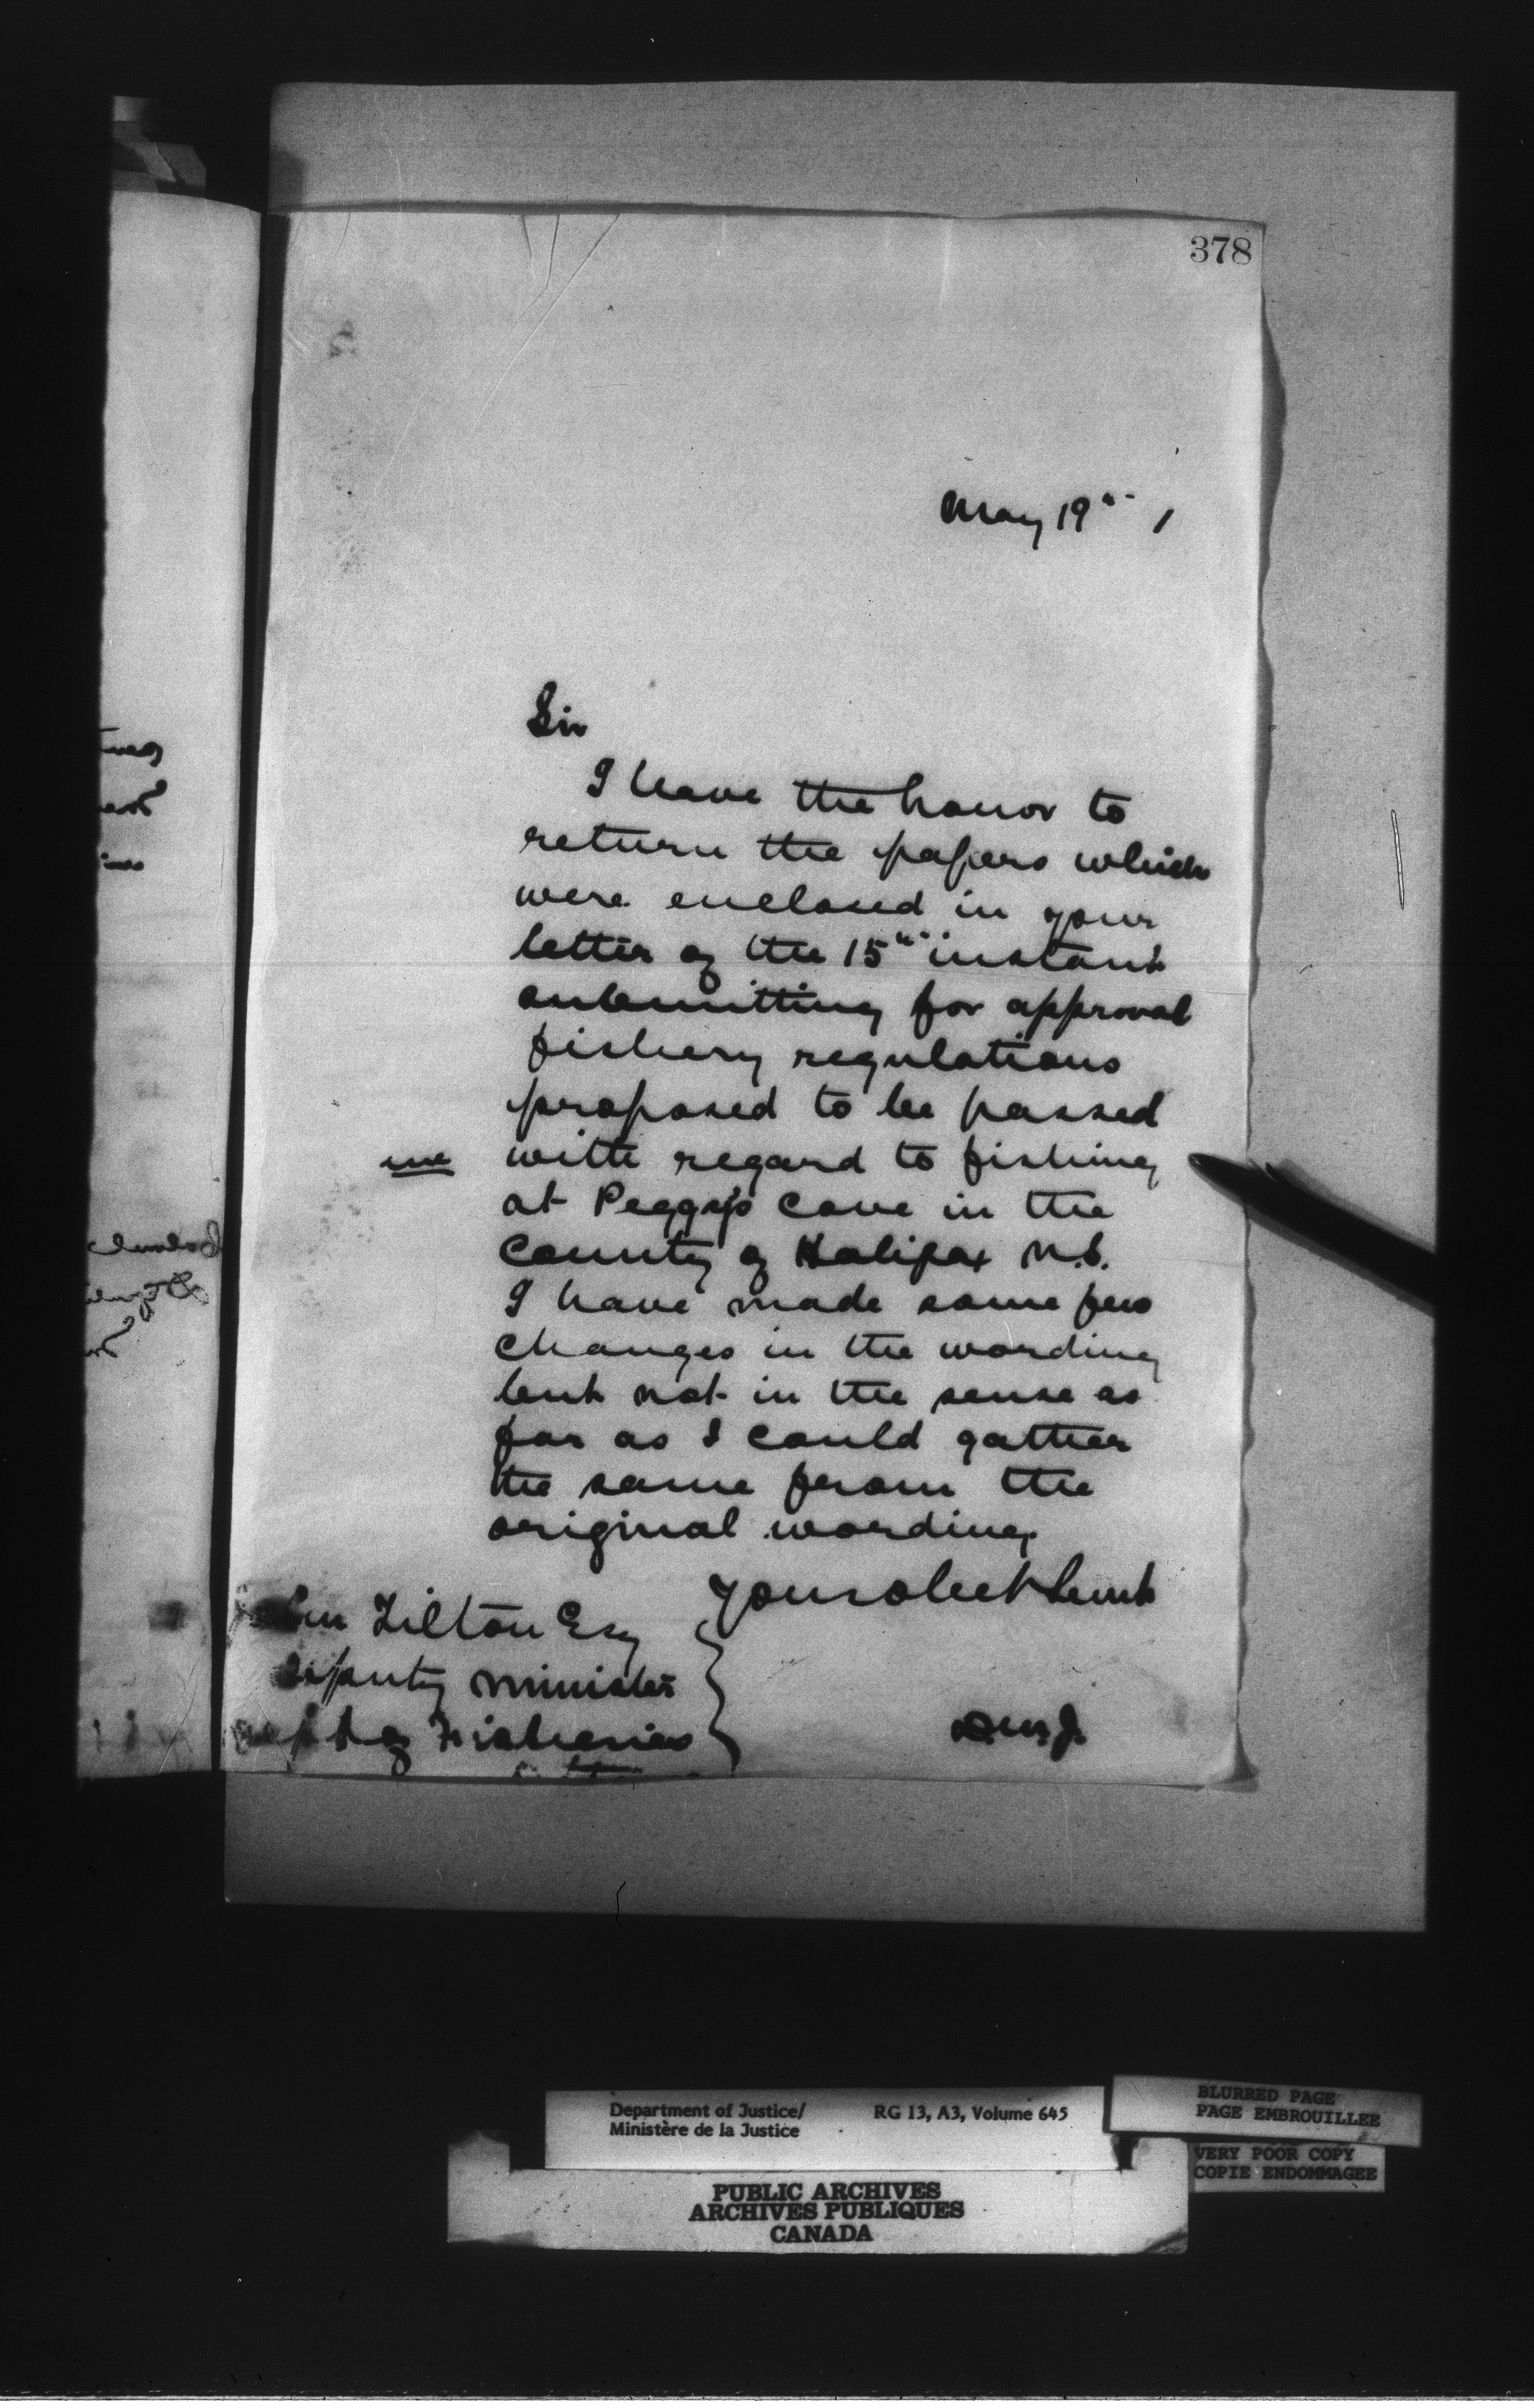 378
May 19th 1
Sir
I have the honor to
return the papers which
were enclosed in your
letter of the 15th instant
submitting for approval
fishery regulations
proposed to be passed
with regard to fishing
at Peggy's Cove in the
County of Halifax N.S.
I have made some few
changes in the wording
but not in the sense as
far as I could gather
the same from the
original wording.
Your obedt Servt
Tilton Esq
Deputy Minister
Dept of Fisheries
D.M.J.
Department of Justice/ RG 13, A3, Volume 645
Ministère de la Justice
BLURRED PAGE
PAGE EMBROUILLEE
VERY POOR COPY
COPIE ENDOMMAGEE
PUBLIC ARCHIVES
ARCHIVES PUBLIQUES
CANADA